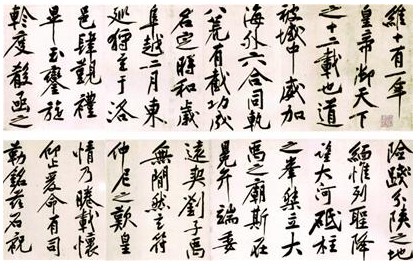 維十有一年
皇帝御天下
之十二載也道
被域中威加
海外六合同軌
八荒有截功成
名定時和歲
阜越二月東
巡狩至于洛
邑肆覲禮
畢玉鑾旋
軫度殽函之
險踐分陝之地
緬惟列聖降
望大河砥柱
之峯桀立大
禹之廟斯在
冕弁端委
遠契劉子禹
無間然玄符
仲尼之歎皇
情乃睠載懷
仰止爰命有司
勒銘茲石祝